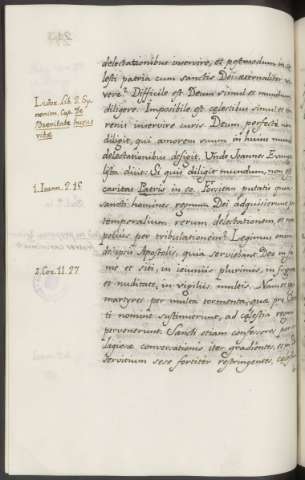 delectationibus inservire, et postmodum in cę-
lesti patria cum sanctis Dei æternaliter vi-
vere? Difficile est Deum simul et mundum
diligere. Impossibile est celestibus simul et ter-
renis inservire curis. Deum perfectè non
diligit, qui amorem suum in huius mundi
delectationibus defigit. Unde Joannes Evange-
lista dicit: Si quis diligit mundum, non est
caritas Patris in eo. Forsitan putatis quod
sancti homines regnum Dei adquisierunt per
temporalium rerum delectationem, et non
potius per tribulationem? Legimus enim
de ipsis Apostolis, quia serviebant Deo in fa-
me et siti, in ieiuniis plurimis, in frigore
et nuditate, in vigiliis multis. Nam et
martyres per multa tormenta, quæ pro Chris-
ti nomine sustinuerunt, ad cęlestia regna
pervenerunt. Sancti etiam confessores per re-
ligiosæ conversationis iter gradientes, et in
servitium sese fortiter restringentes, cęlestia
Isidor. lib. 2. Sy-
nonim. Cap. De
Brevitate huius
vitæ
1. Joann. 2. 15
2. Cor. 11. 27